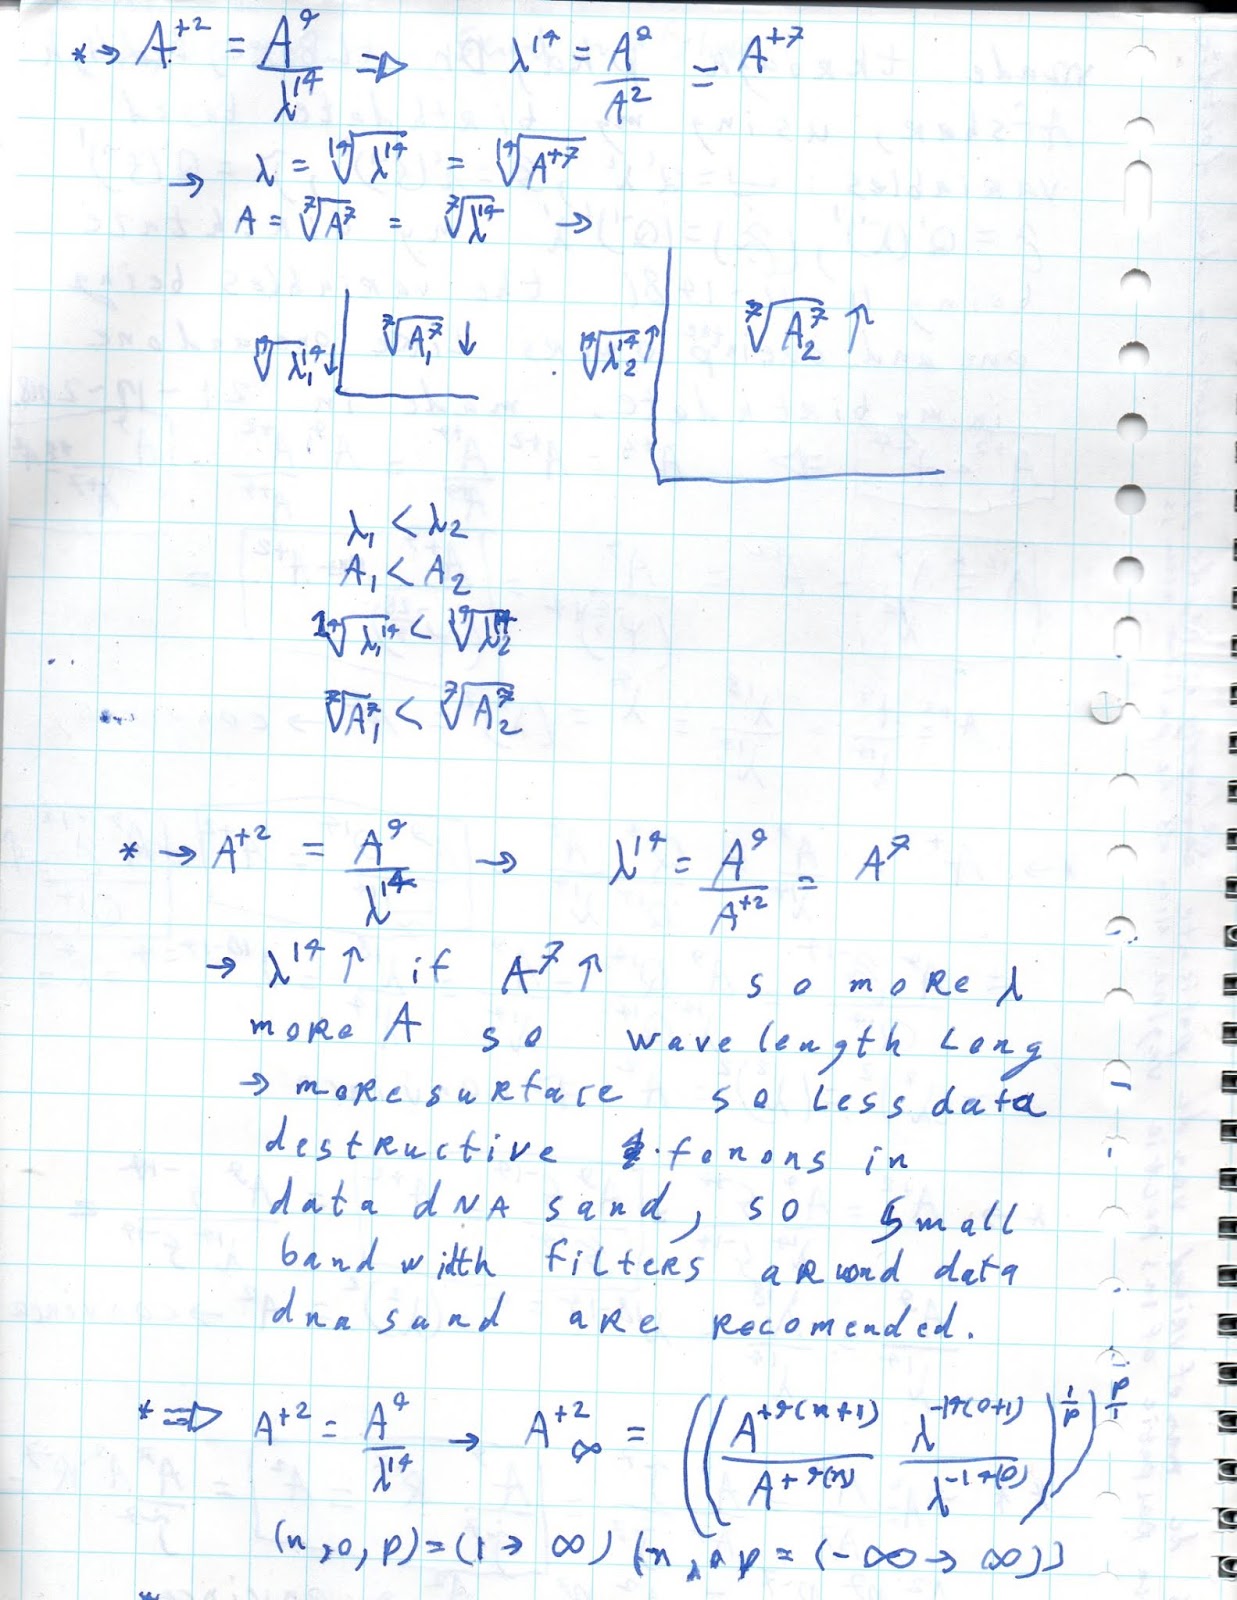 * → A^{+2} = \frac{A^9}{λ^{14}} ⇒ λ^{14} = \frac{A^9}{A^2} = A^{+7}
→ λ = \sqrt[14]{λ^{14}} = \sqrt[14]{A^{+7}}
A = \sqrt[7]{A^7} = \sqrt[7]{λ^{14}} →
\sqrt[14]{λ_1^{14}} ↓ \sqrt[7]{A_1^7} ↓ \sqrt[14]{λ_2^{14}} ↑ \sqrt[7]{A_2^7} ↑
λ_1 < λ_2
A_1 < A_2
\sqrt[14]{λ_1^{14}} < \sqrt[14]{λ_2^{14}}
\sqrt[7]{A_1^7} < \sqrt[7]{A_2^7}
* → A^{+2} = \frac{A^9}{λ^{14}} → λ^{14} = \frac{A^9}{A^{+2}} = A^7
→ λ^{14} ↑ if A^7 ↑ so more λ
more A so wavelength Long
→ more surface so Less data
destructive fonons in
data dNA sand, so small
band width filters around data
dna sand are recomended.
* ⇒ A^{+2} = \frac{A^9}{λ^{14}} → A^{+2}_∞ = ((\frac{A^{+9(n+1)}}{A^{+9(n)}} \frac{λ^{-14(0+1)}}{λ^{-14(0)}})^{\frac{1}{p}})^{\frac{p}{1}}
(n,0,p)=(1→∞) (n, p=(-∞→∞))